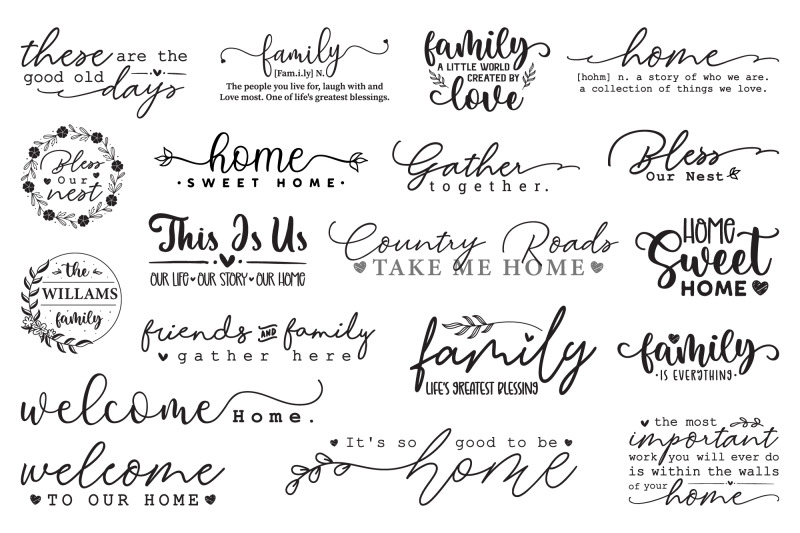 these are the
good old days
family
[Fam.i.ly] N.
The people you live for, laugh with and
Love most. One of life's greatest blessings.
family
A LITTLE WORLD
CREATED BY
love
home
[hohm] n. a story of who we are.
a collection of things we love.
Bless
Our
nest
home
•SWEET HOME•
Gather
together.
Bless
Our Nest
This Is Us
OUR LIFE OUR STORY OUR HOME
Country Roads
TAKE ME HOME
HOME
Sweet
HOME
the
WILLAMS
family
friends AND family
gather here
family
LIFE'S GREATEST BLESSING
family
•IS EVERYTHING•
welcome Home.
welcome
TO OUR HOME
It's so good to be
home
the most
important
work you will ever do
is within the walls
of your home